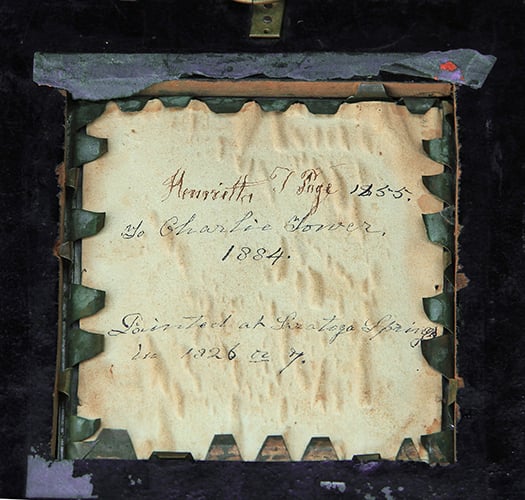 Henrietta T Page 1855.
To Charlie Tower,
1884.
Painted at Saratoga Springs
in 1826 or 7.